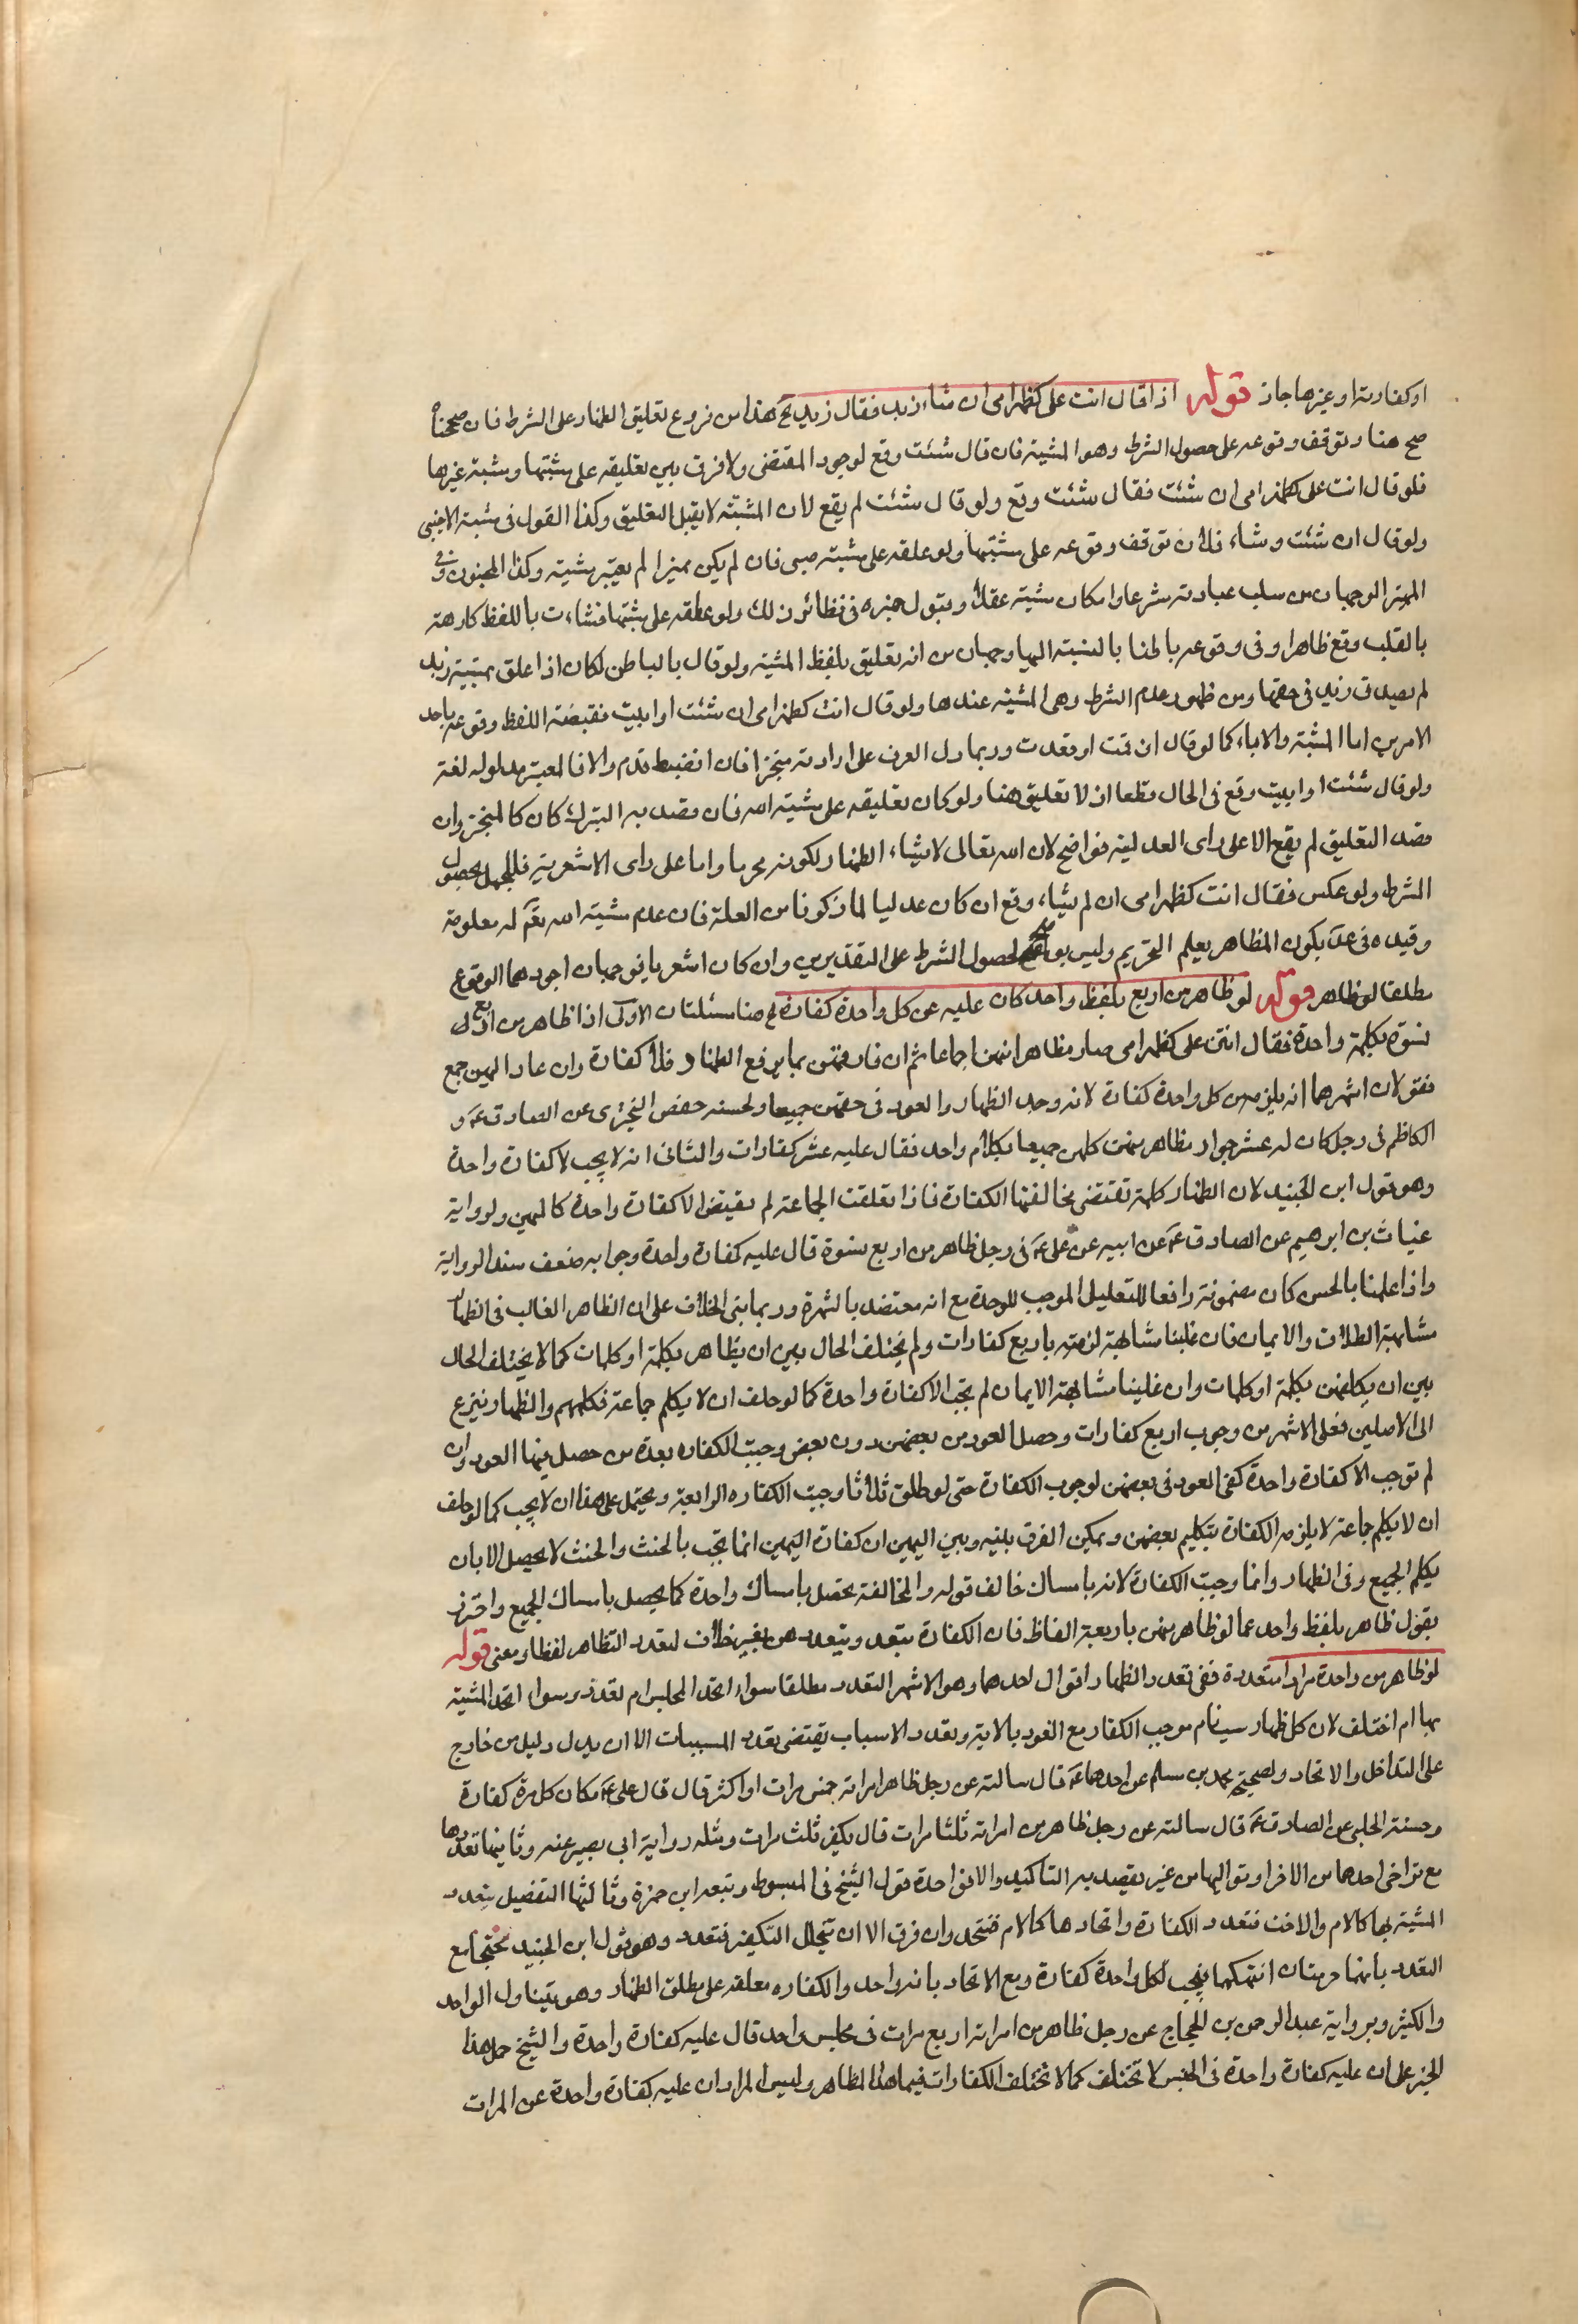 او كفارته او غيرها جاز قوله اذا قال انت على كظهر امى ان شاء زيد فقال زيد الخ هذا من فروع تعليق الظهار على الشرط فان صححناه
صح هنا وتوقف وقوعه على حصول الشرط وهو المشية فان قال شئت وقع لوجود المقتضى ولا فرق بين تعليقه على مشيتها ومشية غيرها
فلو قال انت على كظهر امى ان شئت فقالت شئت وقع ولو قال شئت لم يقع لان المشية لا يقبل التعليق وكذا القول فى مشية الاجنبى
ولو قال ان شئت وشاء فلان توقف وقوعه على مشيتهما ولو علقه على مشية صبى فان لم يكن مميزا لم يعتبر مشيته وكذا المجنون وفى
المميز الوجهان من سلب عبارته شرعا وامكان مشيته عقلا وقبول خبره فى نظائر ذلك ولو علقه على مشيتها فشاءت باللفظ كارهة
بالقلب وقع ظاهرا وفى وقوعه باطنا بالنسبة اليها وجهان من انه تعليق بلفظ المشية ولو قال بالباطن لكان اذا علق بمشية زيد
لم يصدق زيد فى حقها ومن ظهور عدم الشرط وهى المشية عندها ولو قال انت كظهر امى ان شئت او ابيت فقضية اللفظ وقوعه باحد
الامرين اما المشية والاباء كما لو قال ان قمت او قعدت وربما دل العرف على ارادته منجزا فان انضبط قدم والا فالمعتبر مدلوله لغة
ولو قال شئت او ابيت وقع فى الحال قطعا اذ لا تعليق هنا ولو كان تعليقه على مشية الله فان قصد به التبرك كان كالمنجز وان
قصد التعليق لم يقع الا على راى العدلية فواضح لان الله تعالى لا يشاء الظهار لكونه محرما واما على راى الاشعرية فللجهل بحصول
الشرط ولو عكس فقال انت كظهر امى ان لم يشاء وقع ان كان عدليا لما ذكرنا من العلة فان عدم مشية الله تعم له معلومة
وقيده فى عد بكون المظاهر يعلم التحريم وليس بواضح لحصول الشرط على التقديرين وان كان اشعريا فوجهان اجودهما الوقوع
مطلقا لو ظاهر قوله لو ظاهر من اربع بلفظ واحد كان عليه عن كل واحدة كفارة الخ هنا مسئلتان الاولى اذا ظاهر من اربع
نسوة بكلمة واحدة فقال انتن على كظهر امى صار مظاهرا منهن اجماعا ثم ان فارقهن بما يرفع الظهار فلا كفارة وان عاد اليهن جمع
فقولان اشهرهما انه يلزمه من كل واحدة كفارة لانه وجد الظهار والعود فى حقهن جميعا ولحسنة حفص البخترى عن الصادق عم و
الكاظم فى رجل كان له عشر جوار مظاهر منهن كلهن جميعا بكلام واحد فقال عليه عشر كفارات والثانى انه لا يجب الا كفارة واحدة
وهو قول ابن الجنيد لان الظهار كلمة تقتضى مخالفتها الكفارة فاذا تعلقت الجماعة لم يقتض الا كفارة واحدة كاليمين ولرواية
غياث بن ابرهيم عن الصادق عم عن ابيه عن على عم فى رجل ظاهر من اربع نسوة قال عليه كفارة واحدة وجوابه ضعف سند الرواية
واذا علمنا بالحسن كان مضمونه رافعا للتعليل الموجب للوحدة مع انه معتضد بالشهرة وربما بنى الخلاف على ان الظاهر الغالب فى الظهار
مشابهة الطلاق والايمان فان غلبنا مشابهة لزمته باربع كفارات ولم يختلف الحال بين ان يظاهر بكلمة او كلمات كما لا يختلف الحال
بين ان يكلمهن بكلمة او كلمات وان غلبنا مشابهة الايمان لم تجب الا كفارة واحدة كما لو حلف ان لا يكلم جماعة فكلمهم والظهار ينزع
الى الاصلين فعلى الاشهر من وجوب اربع كفارات وحصل العود من بعضهن دون بعض وجبت الكفاره بعدة من حصل فيها العود وان
لم توجب الا كفارة واحدة كفى العود فى بعضهن لوجوب الكفارة حتى لو طلق ثلاثا وجبت الكفاره الرابعة ويحتمل على هذا ان لا يجب كما لو حلف
ان لا يكلم جماعة لا يلزمه الكفارة بتكليم بعضهن ويمكن الفرق بينه وبين اليمين ان كفارة اليمين انما تجب بالحنث والحنث لا يحصل الا بان
يكلم الجميع وفى الظهار وانما وجبت الكفارة لانه بامساك خالف قوله والمخالفة تحصل بامساك واحدة كما يحصل بامساك الجميع واحترز
بقول ظاهر بلفظ واحد عما لو ظاهر منهن باربعة الفاظ فان الكفارة يتعدد ويتعدد هن بغير خلاف لتعدد التظاهر لفظا ومعنى قوله
لو ظاهر من واحدة مرارا متعددة ففى تعدد الظهار اقوال احدهما وهو الاشهر التعدد مطلقا سواء اتحد المجلس ام تعدد وسواء اتحد المشبه
بها ام اختلف لان كل ظهار سبب تام موجب الكفار مع العود بالاية وتعدد الاسباب يقتضى تعدد المسببات الا ان يدل دليل من خارج
على التداخل والاتحاد ولصحيحة محمد بن مسلم عن احدهما عم قال سالته عن رجل ظاهر امراته خمس مرات او اكثر قال قال على عم مكان كل مرة كفارة
وحسنة الحلبى عن الصادق عم قال سالته عن رجل ظاهر من امراته ثلثا مرات قال يكفر ثلث مرات ومثله رواية ابى بصير عنه وثانيها تعددها
مع تراخى احدهما من الاخر او تواليها من غير يقصد به التاكيد والا فواحدة قول الشيخ فى المبسوط وتبعه ابن حمزة وثالثها التفصيل بتعدد
المشبه بها كالام والاخت فتعدد الكفارة واتحادها كالام فيتحد وان فرق الا ان يتخلل التكفير فتعدد وهو قول ابن الجنيد محتجا مع
التعدد بانهما حرمتان انتهكهما فيجب لكل واحدة كفارة ومع الاتحاد بانه واحد والكفاره معلقة على مطلق الظهار وهو يتناول الواحد
والكثير وبرواية عبد الرحمن بن الحجاج عن رجل ظاهر من امراته اربع مرات فى مجلس واحد قال عليه كفارة واحدة والشيخ حمل هذا
الخبر على ان عليه كفارة واحدة فى الجنس لا تختلف كما لا تختلف الكفارات فيما هذا المظاهر وليس المراد ان عليه كفارة واحدة عن المرات